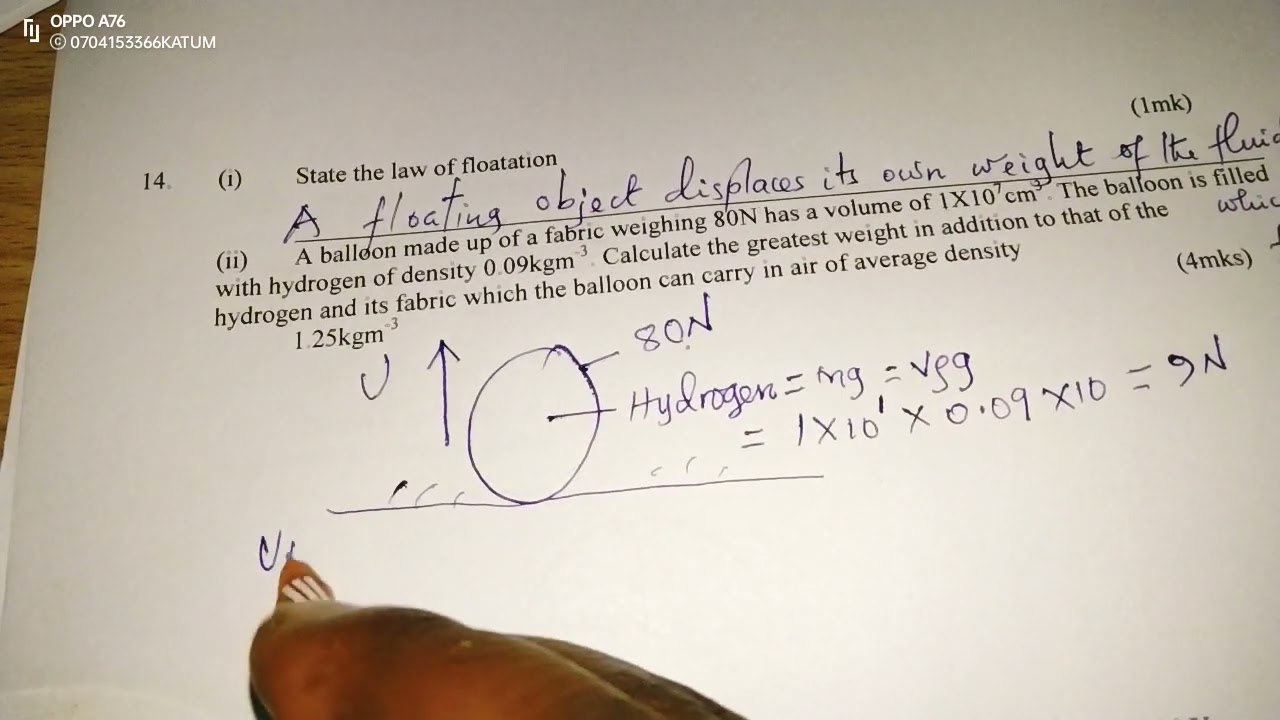 OPPO A76
© 0704153366KATUM
(1mk)
14. (i) State the law of floatation
A floating object displaces its own weight of the fluid
(ii) A balloon made up of a fabric weighing 80N has a volume of 1X10⁷cm³. The balloon is filled
whic
with hydrogen of density 0.09kgm⁻³. Calculate the greatest weight in addition to that of the
hydrogen and its fabric which the balloon can carry in air of average density (4mks)
1.25kgm⁻³
U
80N
Hydrogen = mg = Vρg
= 1X10¹ X 0.09 X10 = 9N